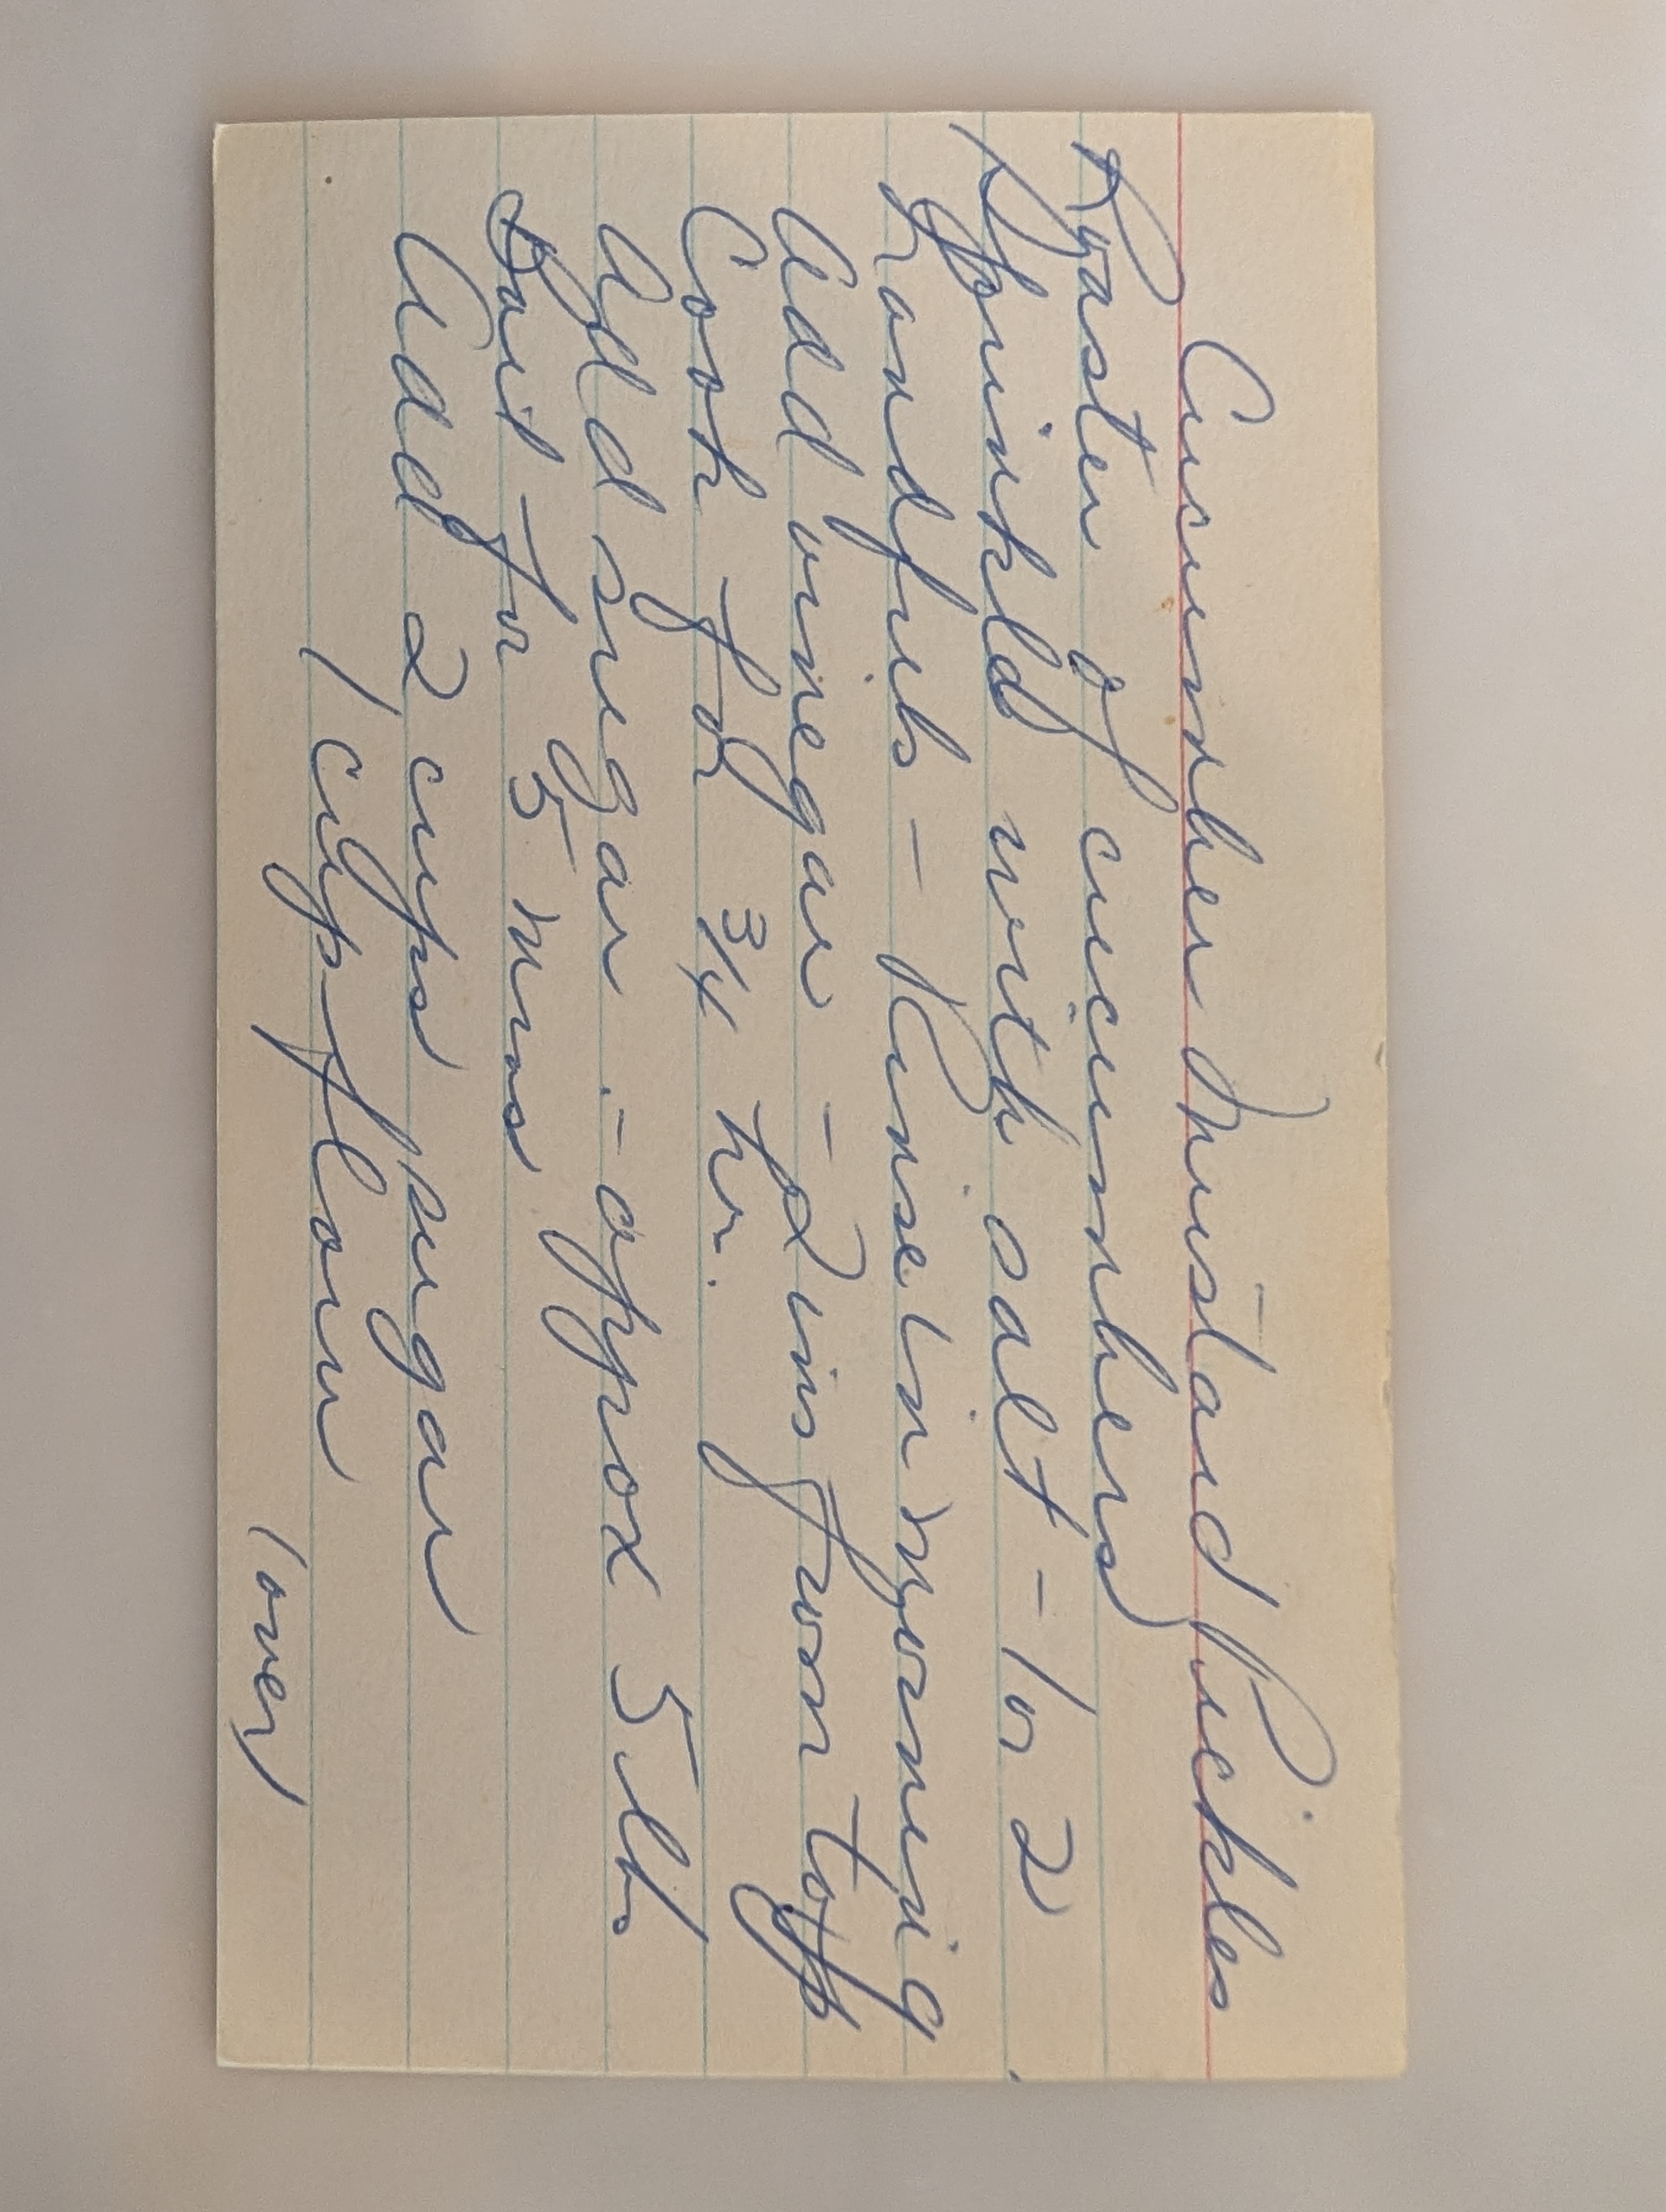 Cucumber Mustard Pickles
Roaster of cucumbers
Sprinkld with salt - 1 or 2
handfuls - Rinse in morning
Add vinegar - 2 ins from topp
Cook for 3/4 hr.
Add sugar - approx 5 lb.
Boil for 5 mins
Add 2 cups sugar
1 cup flour
(over)